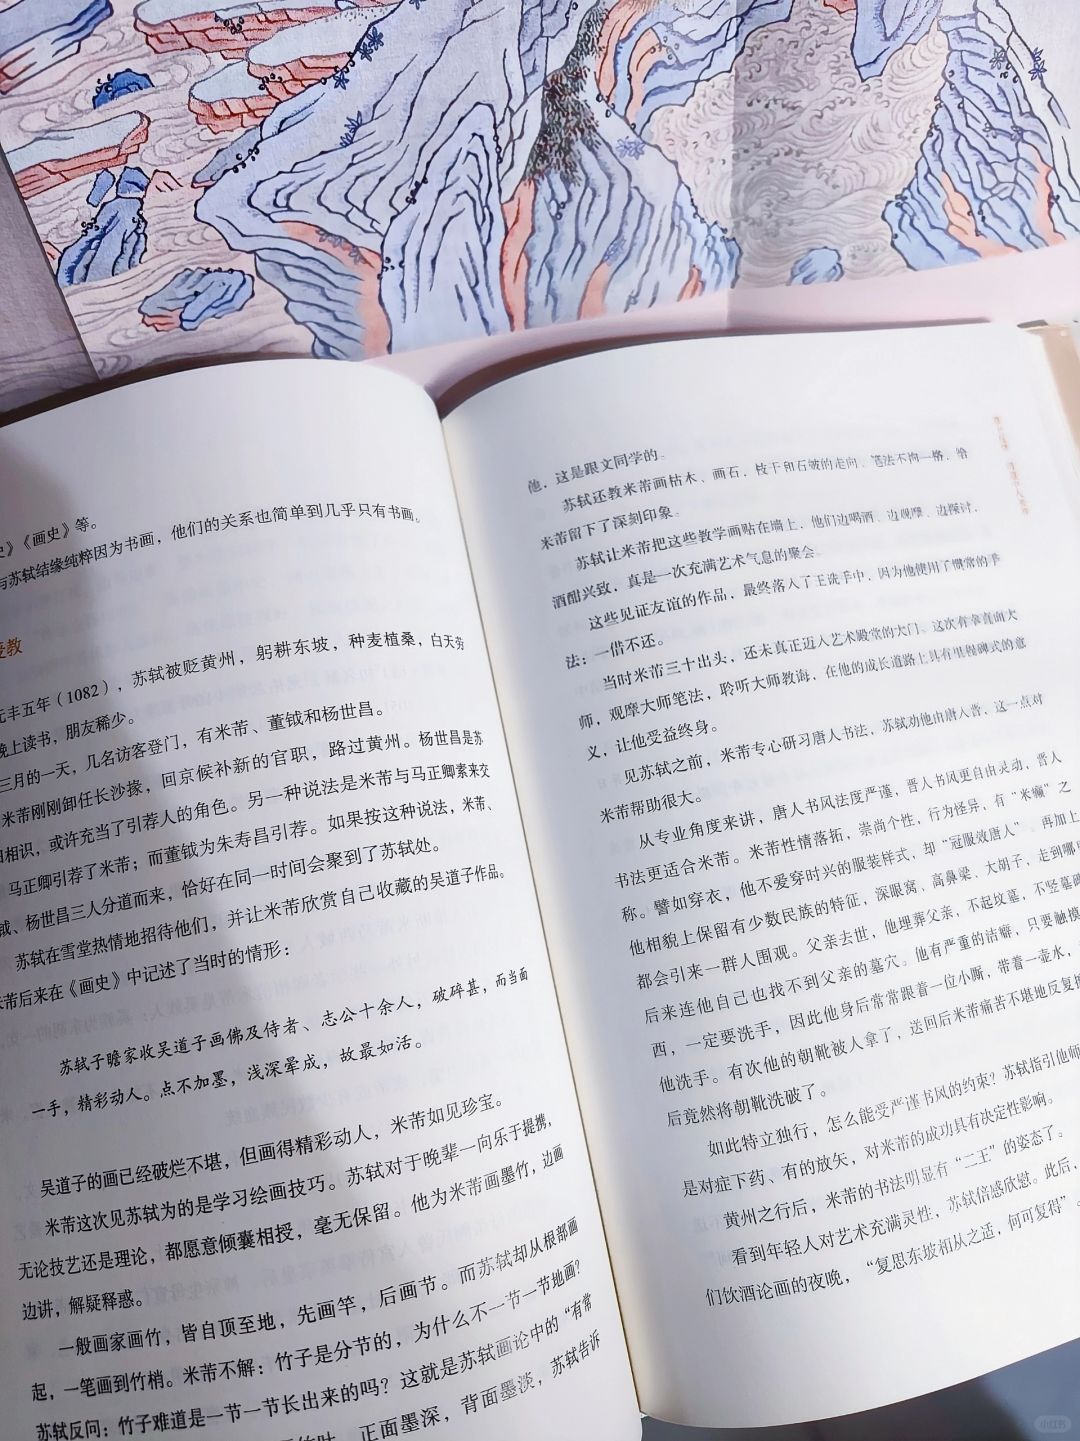 史》《画史》等。
与苏轼结缘纯粹因为书画，他们的关系也简单到几乎只有书画。
受教
元丰五年（1082），苏轼被贬黄州，躬耕东坡，种麦植桑，白天劳
晚上读书，朋友稀少。
三月的一天，几名访客登门，有米芾、董钺和杨世昌。
米芾刚刚卸任长沙掾，回京候补新的官职，路过黄州。杨世昌是苏
相识，或许充当了引荐人的角色。另一种说法是米芾与马正卿素来交
马正卿引荐了米芾；而董钺为朱寿昌引荐。如果按这种说法，米芾、
钺、杨世昌三人分道而来，恰好在同一时间会聚到了苏轼处。
苏轼在雪堂热情地招待他们，并让米芾欣赏自己收藏的吴道子作品。
米芾后来在《画史》中记述了当时的情形：
苏轼子瞻家收吴道子画佛及侍者、志公十余人，破碎甚，而当面
一手，精彩动人。点不加墨，浅深晕成，故最如活。
吴道子的画已经破烂不堪，但画得精彩动人，米芾如见珍宝。
米芾这次见苏轼为的是学习绘画技巧。苏轼对于晚辈一向乐于提携，
无论技艺还是理论，都愿意倾囊相授，毫无保留。他为米芾画墨竹，边画
边讲，解疑释惑。
一般画家画竹，皆自顶至地，先画竿，后画节。而苏轼却从根部画
起，一笔画到竹梢。米芾不解：竹子是分节的，为什么不一节一节地画？
苏轼反问：竹子难道是一节一节长出来的吗？这就是苏轼画论中的“有常
竹叶，正面墨深，背面墨淡，苏轼告诉
他，这是跟文同学的。
苏轼还教米芾画枯木、画石，枝干和石皴的走向、笔法不拘一格，给
米芾留下了深刻印象。
苏轼让米芾把这些教学画贴在墙上，他们边喝酒、边观摩、边探讨，
酒酣兴致，真是一次充满艺术气息的聚会。
这些见证友谊的作品，最终落入了王诜手中，因为他使用了惯常的手
法：一借不还。
当时米芾三十出头，还未真正迈入艺术殿堂的大门。这次有幸直面大
师，观摩大师笔法，聆听大师教诲，在他的成长道路上具有里程碑式的意
义，让他受益终身。
见苏轼之前，米芾专心研习唐人书法，苏轼劝他由唐入晋，这一点对
米芾帮助很大。
从专业角度来讲，唐人书风法度严谨，晋人书风更自由灵动，晋人
书法更适合米芾。米芾性情落拓，崇尚个性，行为怪异，有“米癫”之
称。譬如穿衣，他不爱穿时兴的服装样式，却“冠服效唐人”。再加上
他相貌上保留有少数民族的特征，深眼窝、高鼻梁、大胡子，走到哪
都会引来一群人围观。父亲去世，他埋葬父亲，不起坟墓，不竖墓碑
后来连他自己也找不到父亲的墓穴。他有严重的洁癖，只要触摸
西，一定要洗手，因此他身后常常跟着一位小厮，带着一壶水，
他洗手。有次他的朝靴被人拿了，送回后米芾痛苦不堪地反复擦
后竟然将朝靴洗破了。
如此特立独行，怎么能受严谨书风的约束？苏轼指引他师
是对症下药、有的放矢，对米芾的成功具有决定性影响。
黄州之行后，米芾的书法明显有“二王”的姿态了。
看到年轻人对艺术充满灵性，苏轼倍感欣慰。此后，
们饮酒论画的夜晚，“复思东坡相从之适，何可复得”。
小红书